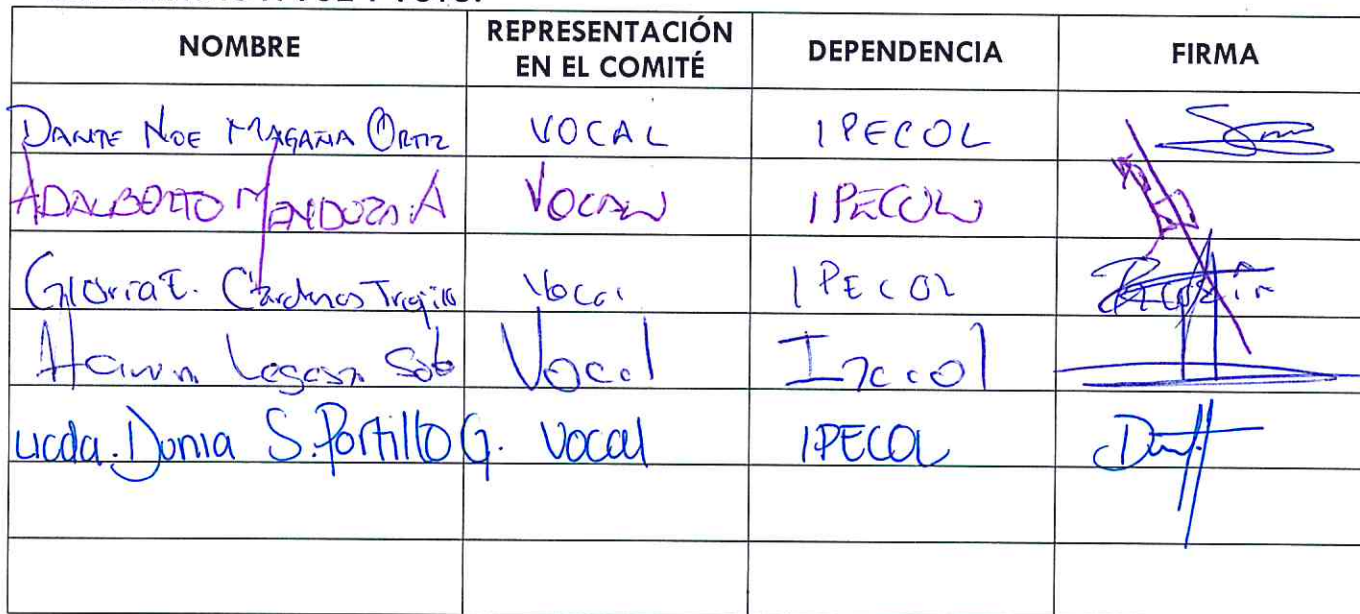 NOMBRE REPRESENTACIÓN EN EL COMITÉ DEPENDENCIA FIRMA
DANTE NOE MAGAÑA ORTIZ VOCAL IPECOL
ADALBERTO MENDOZA A VOCAL IPECOL
Gloria E. Cárdenas Trujillo Vocal IPECOL
Vocal
Licda. Dunia S. Portillo G. Vocal IPECOL